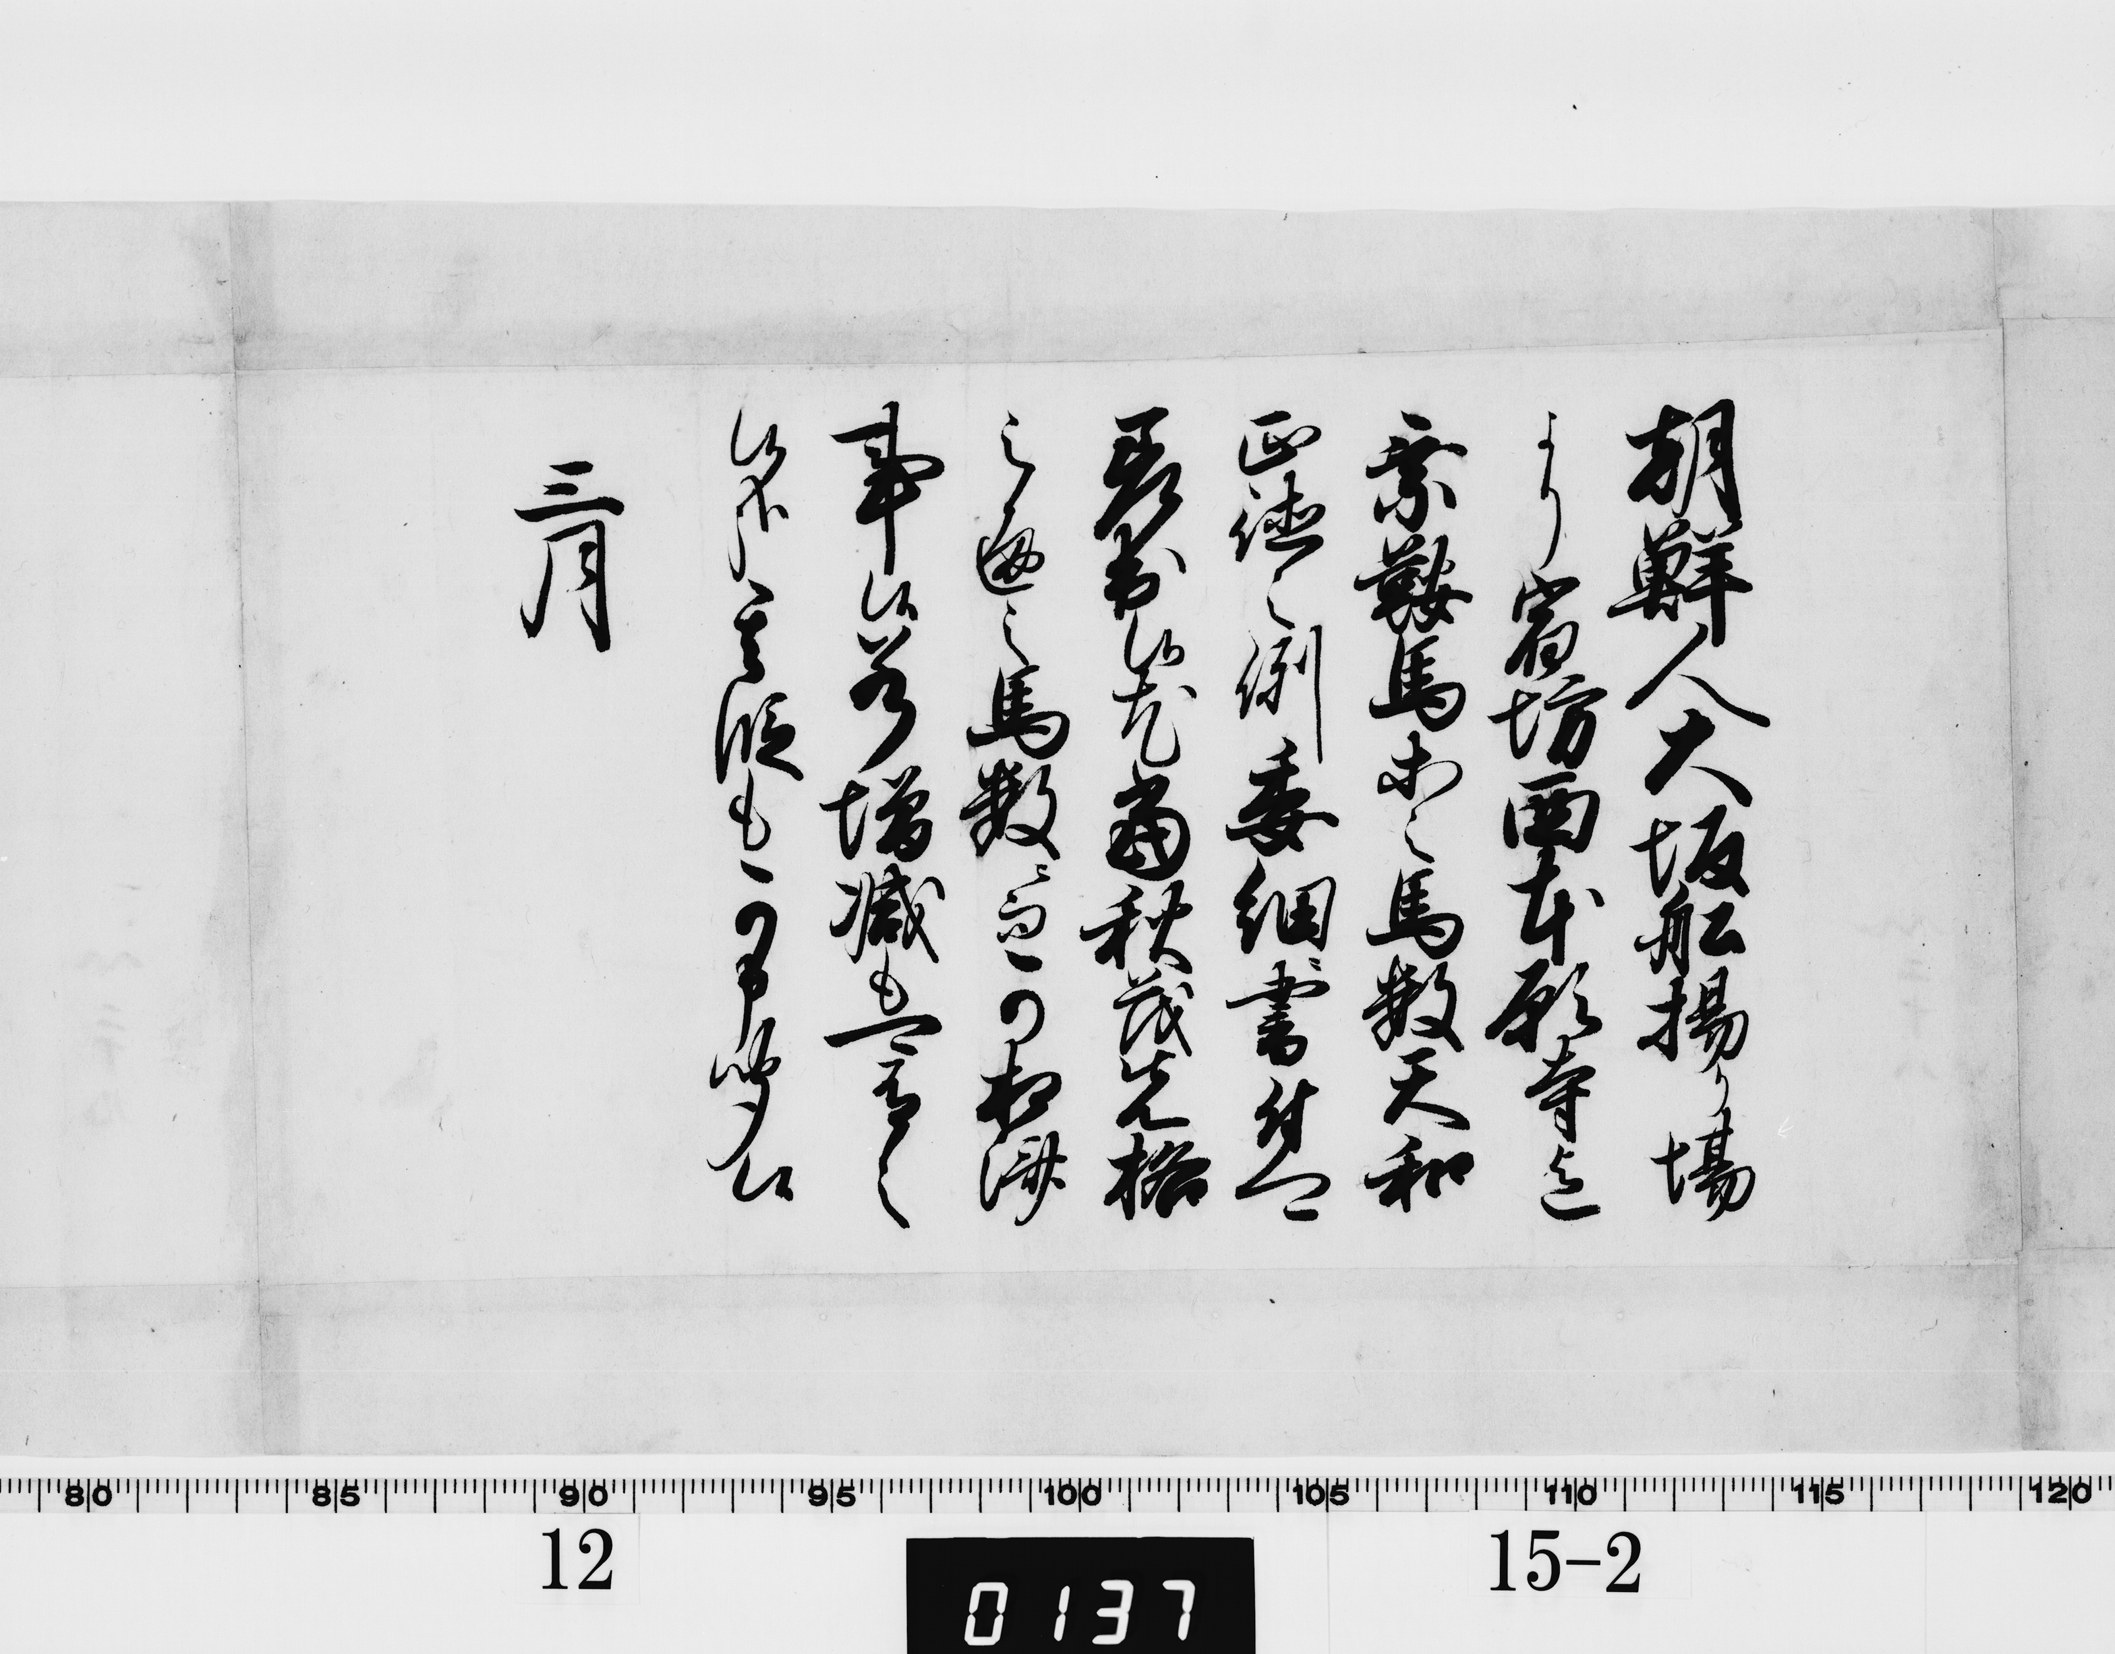 朝鮮人大坂舩揚り場
より宿坊西本願寺迄
乗鞍馬等之馬数天和
正徳之例委細書付可
差出候尤當秋茂先格
之通之馬数ニ而可相済
事候若増減も可有之
候ハヽ其段も可申聞候
三月
80 85 90 95 100 105 110 115 120
12
0137
15-2